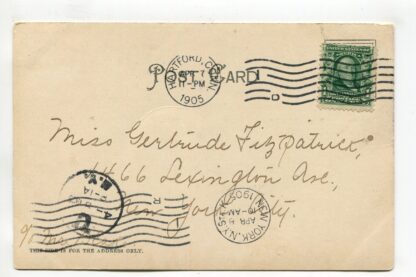 POST CARD
HARTFORD, CONN.
APR 7
11-PM
1905
Miss Gertrude Fitzpatrick,
1466 Lexington Ave,
New York City.
NEW YORK, N.Y. STA. K.
APR 8
10-AM
1905
N.Y.
THIS SIDE IS FOR THE ADDRESS ONLY.